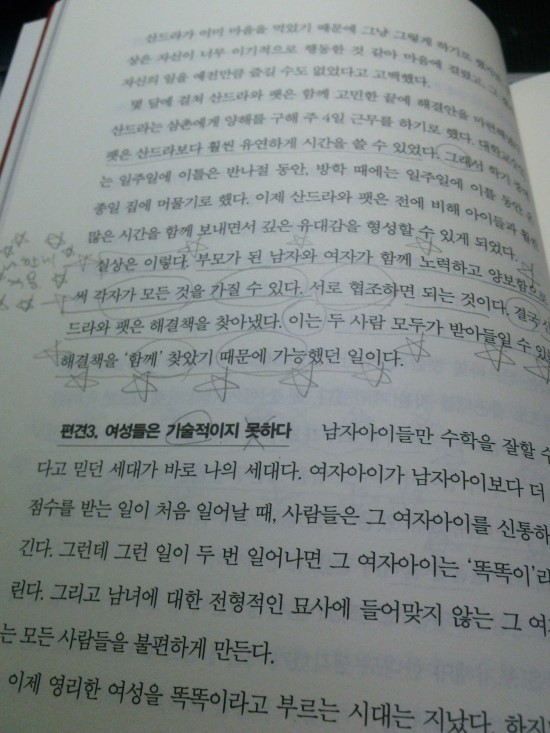 산드라가 이미 마음을 먹었기 때문에 그냥 그렇게 하기로
실은 자신이 너무 이기적으로 행동한 것 같아 마음에 걸렸고, 그
자신의 일을 예전만큼 즐길 수도 없었다고 고백했다.
몇 달에 걸쳐 산드라와 팻은 함께 고민한 끝에 해결안을
산드라는 삼촌에게 양해를 구해 주 4일 근무를 하기로 했다.
팻은 산드라보다 훨씬 유연하게 시간을 쓸 수 있었다. 그래서 학기
는 일주일에 이틀은 반나절 동안, 방학 때에는 일주일에 이틀 동안
종일 집에 머물기로 했다. 이제 산드라와 팻은 전에 비해 아이들과 훨씬
많은 시간을 함께 보내면서 깊은 유대감을 형성할 수 있게 되었다.
실상은 이렇다. 부모가 된 남자와 여자가 함께 노력하고 양보함으로
써 각자가 모든 것을 가질 수 있다. 서로 협조하면 되는 것이다. 결국
드라와 팻은 해결책을 찾아냈다. 이는 두 사람 모두가 받아들일 수
해결책을 ‘함께’ 찾았기 때문에 가능했던 일이다.
편견3. 여성들은 기술적이지 못하다 남자아이들만 수학을 잘할 수
다고 믿던 세대가 바로 나의 세대다. 여자아이가 남자아이보다 더
점수를 받는 일이 처음 일어날 때, 사람들은 그 여자아이를 신통하
긴다. 그런데 그런 일이 두 번 일어나면 그 여자아이는 ‘똑똑이’라
린다. 그리고 남녀에 대한 전형적인 묘사에 들어맞지 않는 그 여
는 모든 사람들을 불편하게 만든다.
이제 영리한 여성을 똑똑이라고 부르는 시대는 지났다. 하지만